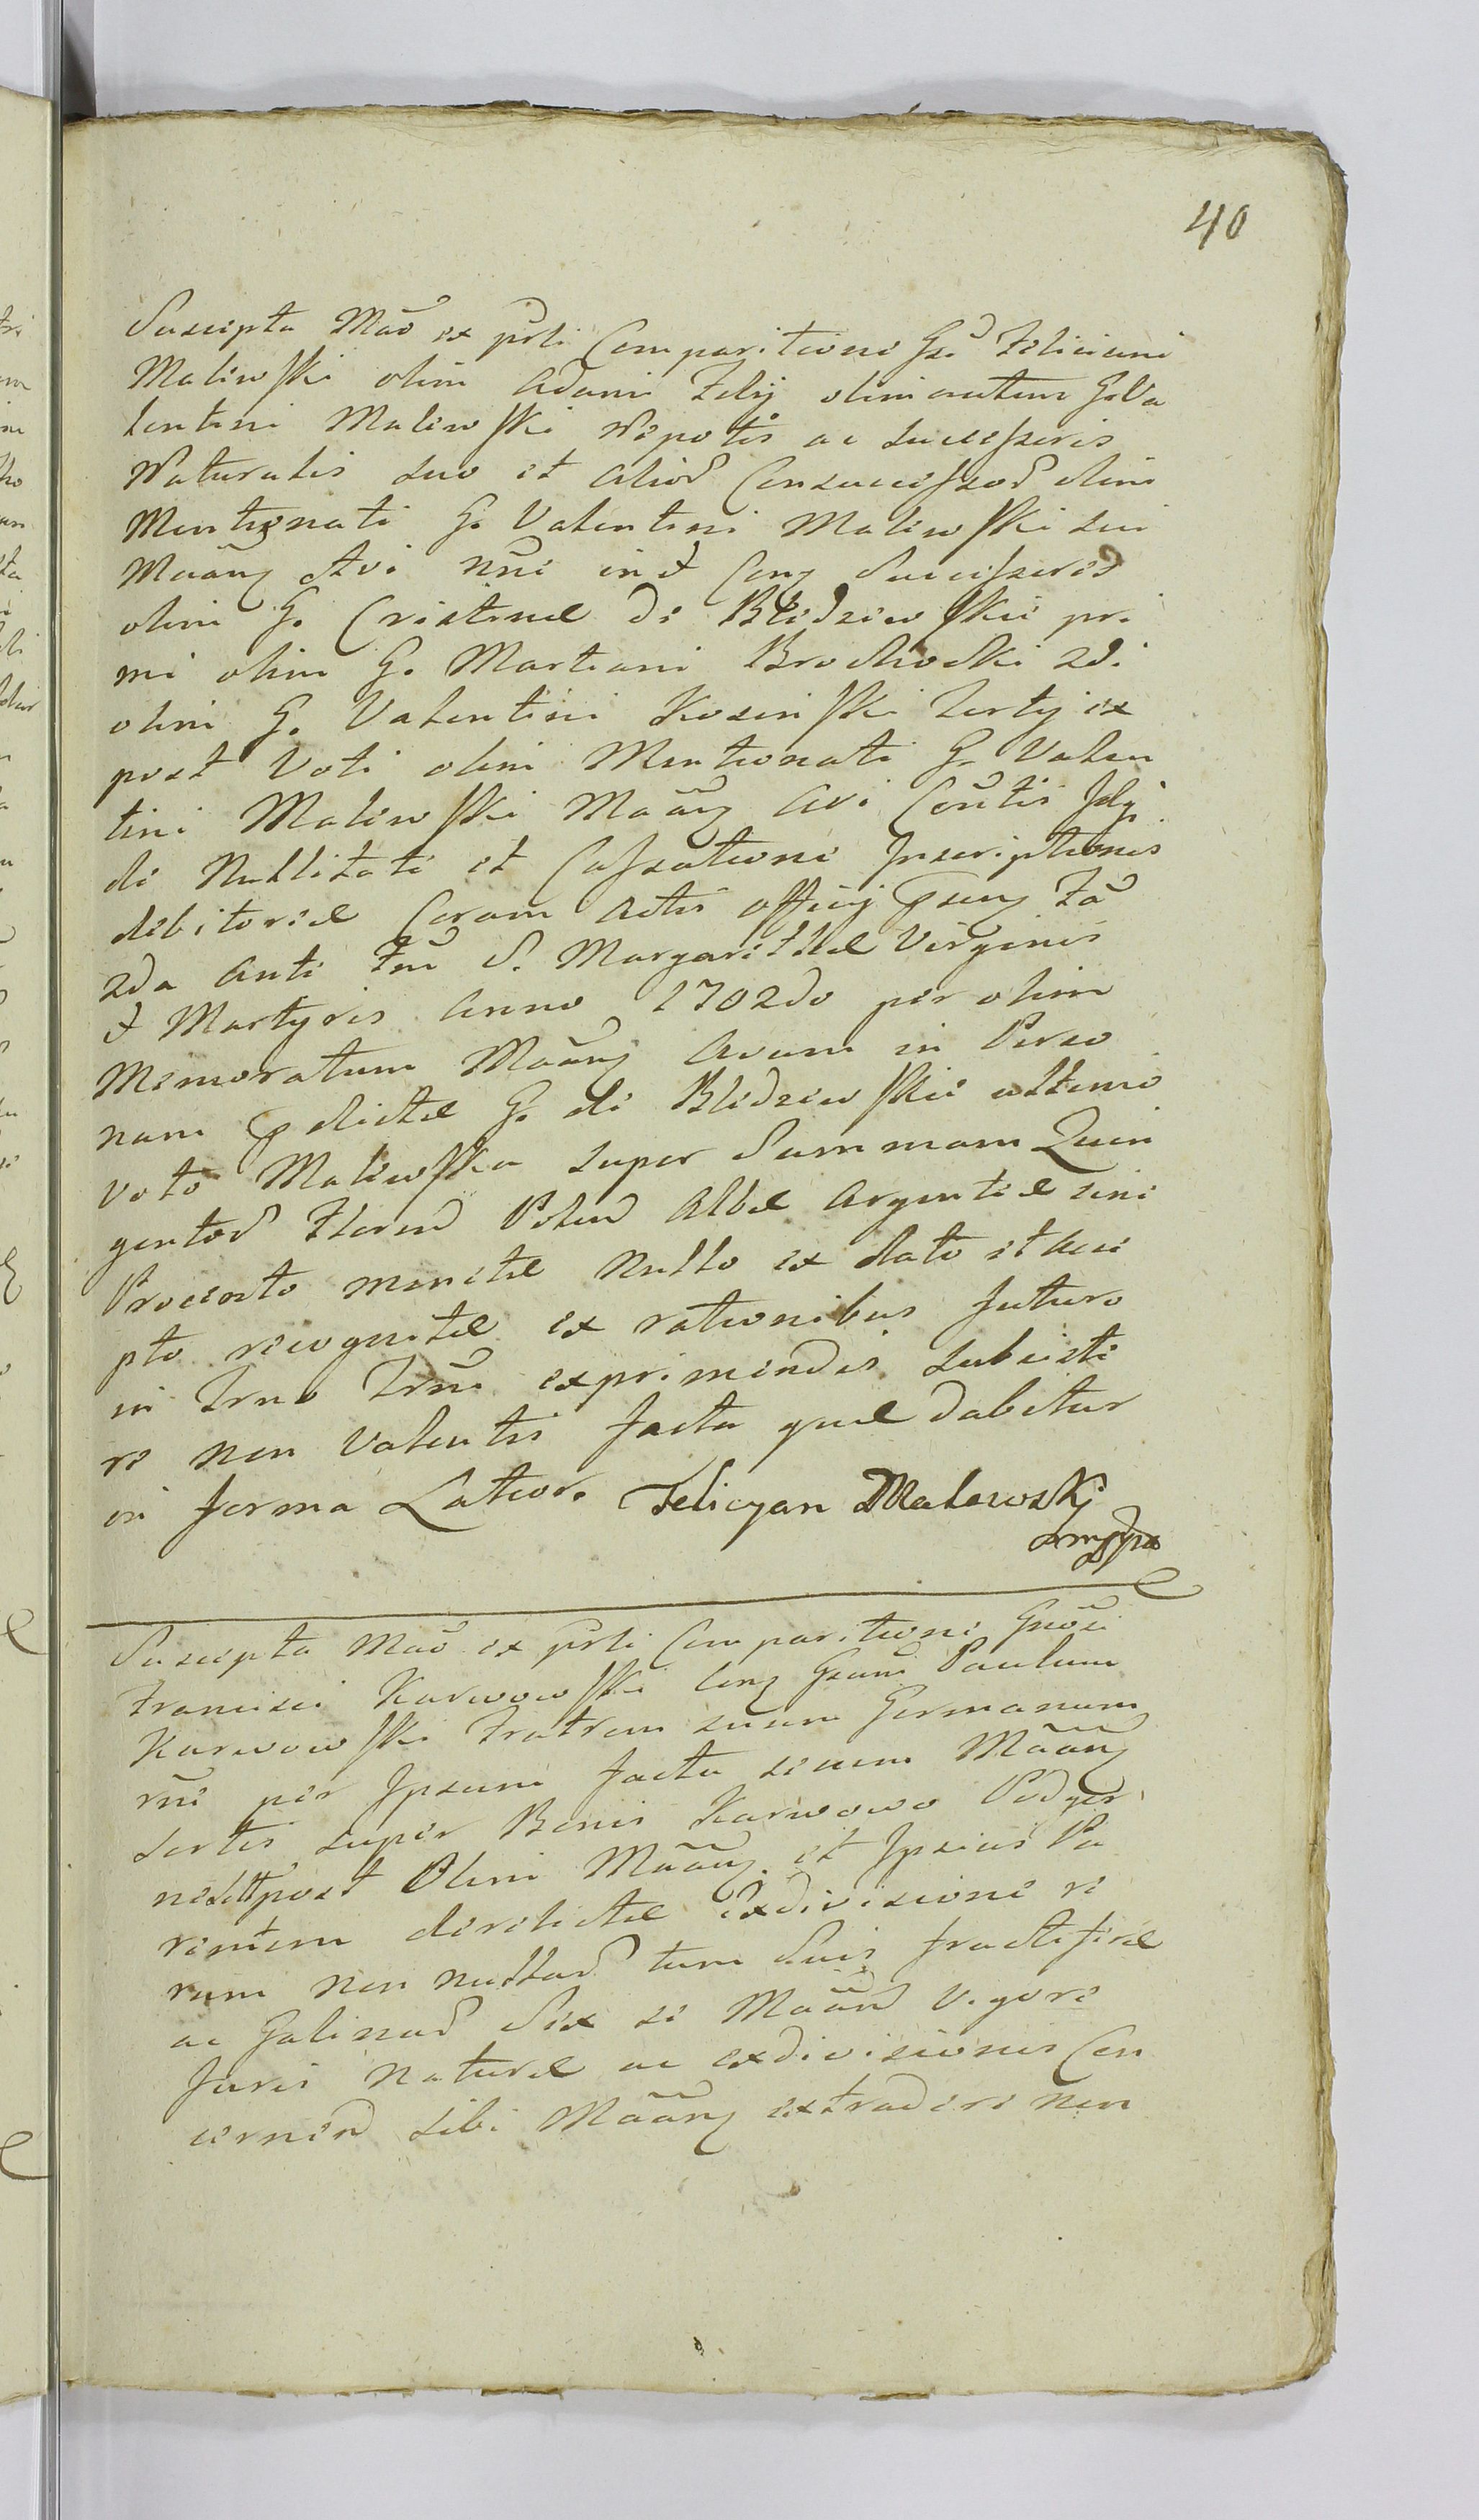 40
Suscepta Mão ex prsti Comparitione Gsi Feliciani
Malewski olim Adami Filij olim autem G. Va
lentini Malewski Nepotis ac Successoris
Naturalis suo et alior Consuccessor olim
Mentionati G. Valentini Malewski sui
Mãang Avi nõe in et Cong Successores
olim G. Cristinae de Bledzewskie pri
mi olim G. Martiani Brochocki 2di
olim G. Valentini Kosinski tertij ex
post Voti olim Mentionati G. Valen
tini Malewski Mãang Avi Cõntis
de Nullitate et Cassatione Inscriptionis
debitoriae Coram Actis officij Fa
2da ante Fm S. Margarithae Virginis
et Martyris Anno 1702do per olim
Memoratum Mãang Avum in Perso
nam dictae G. de Bledzewskie ultimo
voto Malewska super Summam Quin
gentor Floren Polon Albae Argenteae seu
Procento monetae Nullo ex dato et acce
pto recognitae ex rationibus futuro
in Trno Trmi exprimendis subsiste
re non Valentis facta quae dabitur
in forma Latior. Felicyan Malewskj
mppa
Suscepta Mão ex prsti Comparitione Gnõsi
Francisci Karwowski Cong Gsum Paulum
Karwowski Fratrem suum Germanum
rñe per Ipsum facta secum Mãang
sortis super Bonis Karwowo Podger
post Olim Mãang et Ipsius Pa
rentem derelictae exdivisione re
rum non nullar tum Suis
ac Galinar Sex se Mãan vigore
Juris naturae ac exdivisionis Con
cernen sibi Mãang extradere non